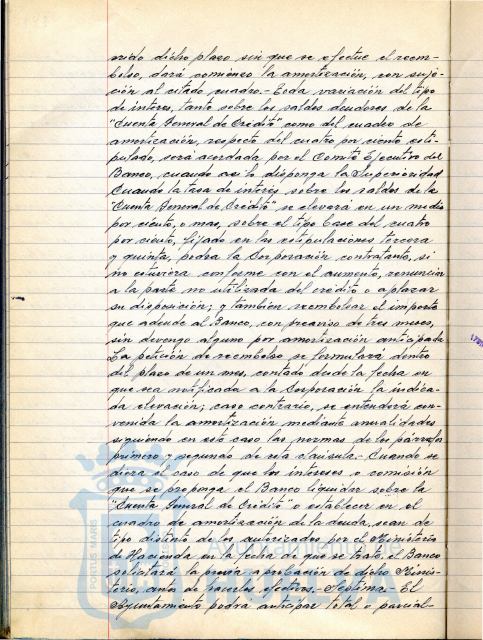 rrido dicho plazo sin que se efectue el reem-
bolso, dará comienzo la amortización, con suje-
ción al citado cuadro.- Toda variación del tipo
de interes, tanto sobre los saldos deudores de la
"Cuenta General de Crédito" como del cuadro de
amortización, respecto del cuatro por ciento esti-
pulado, será acordada por el Comité Ejecutivo del
Banco, cuando asi lo disponga la Superioridad
Cuando la tasa de interés sobre los saldos de la
"Cuenta General de Crédito" se elevará en un medio
por ciento, o mas, sobre el tipo base del cuatro
por ciento, fijado en las estipulaciones tercera
y quinta, podra la Corporación contratante, si
no estuviera conforme con el aumento, renunciar
a la parte no utilizada del crédito o aplazar
su disposición; y también reembolsar el importe
que adeude al Banco, con preaviso de tres meses,
sin devengo alguno por amortización anticipada
La petición de reembolso se formulará dentro
del plazo de un mes, contado desde la fecha en
que sea notificada a la Corporación la indica-
da elevación; caso contrario, se entenderá con-
venida la amortización mediante anualidades
siguiendo en este caso las normas de los párrafos
primero y segundo de esta clausula.- Cuando se
diera el caso de que los intereses o comisión
que se proponga el Banco liquidar sobre la
"Cuenta General de Crédito" o establecer en el
cuadro de amortización de la deuda, sean de
tipo distinto de los autorizados por el Ministerio
de Hacienda en la fecha de que se trate, el Banco
solicitará la previa aprobación de dicho Minis-
terio, antes de hacerlos efectivos.- Septima.- El
Ayuntamiento podra anticipar total o parcial-
PORTUS MARIS